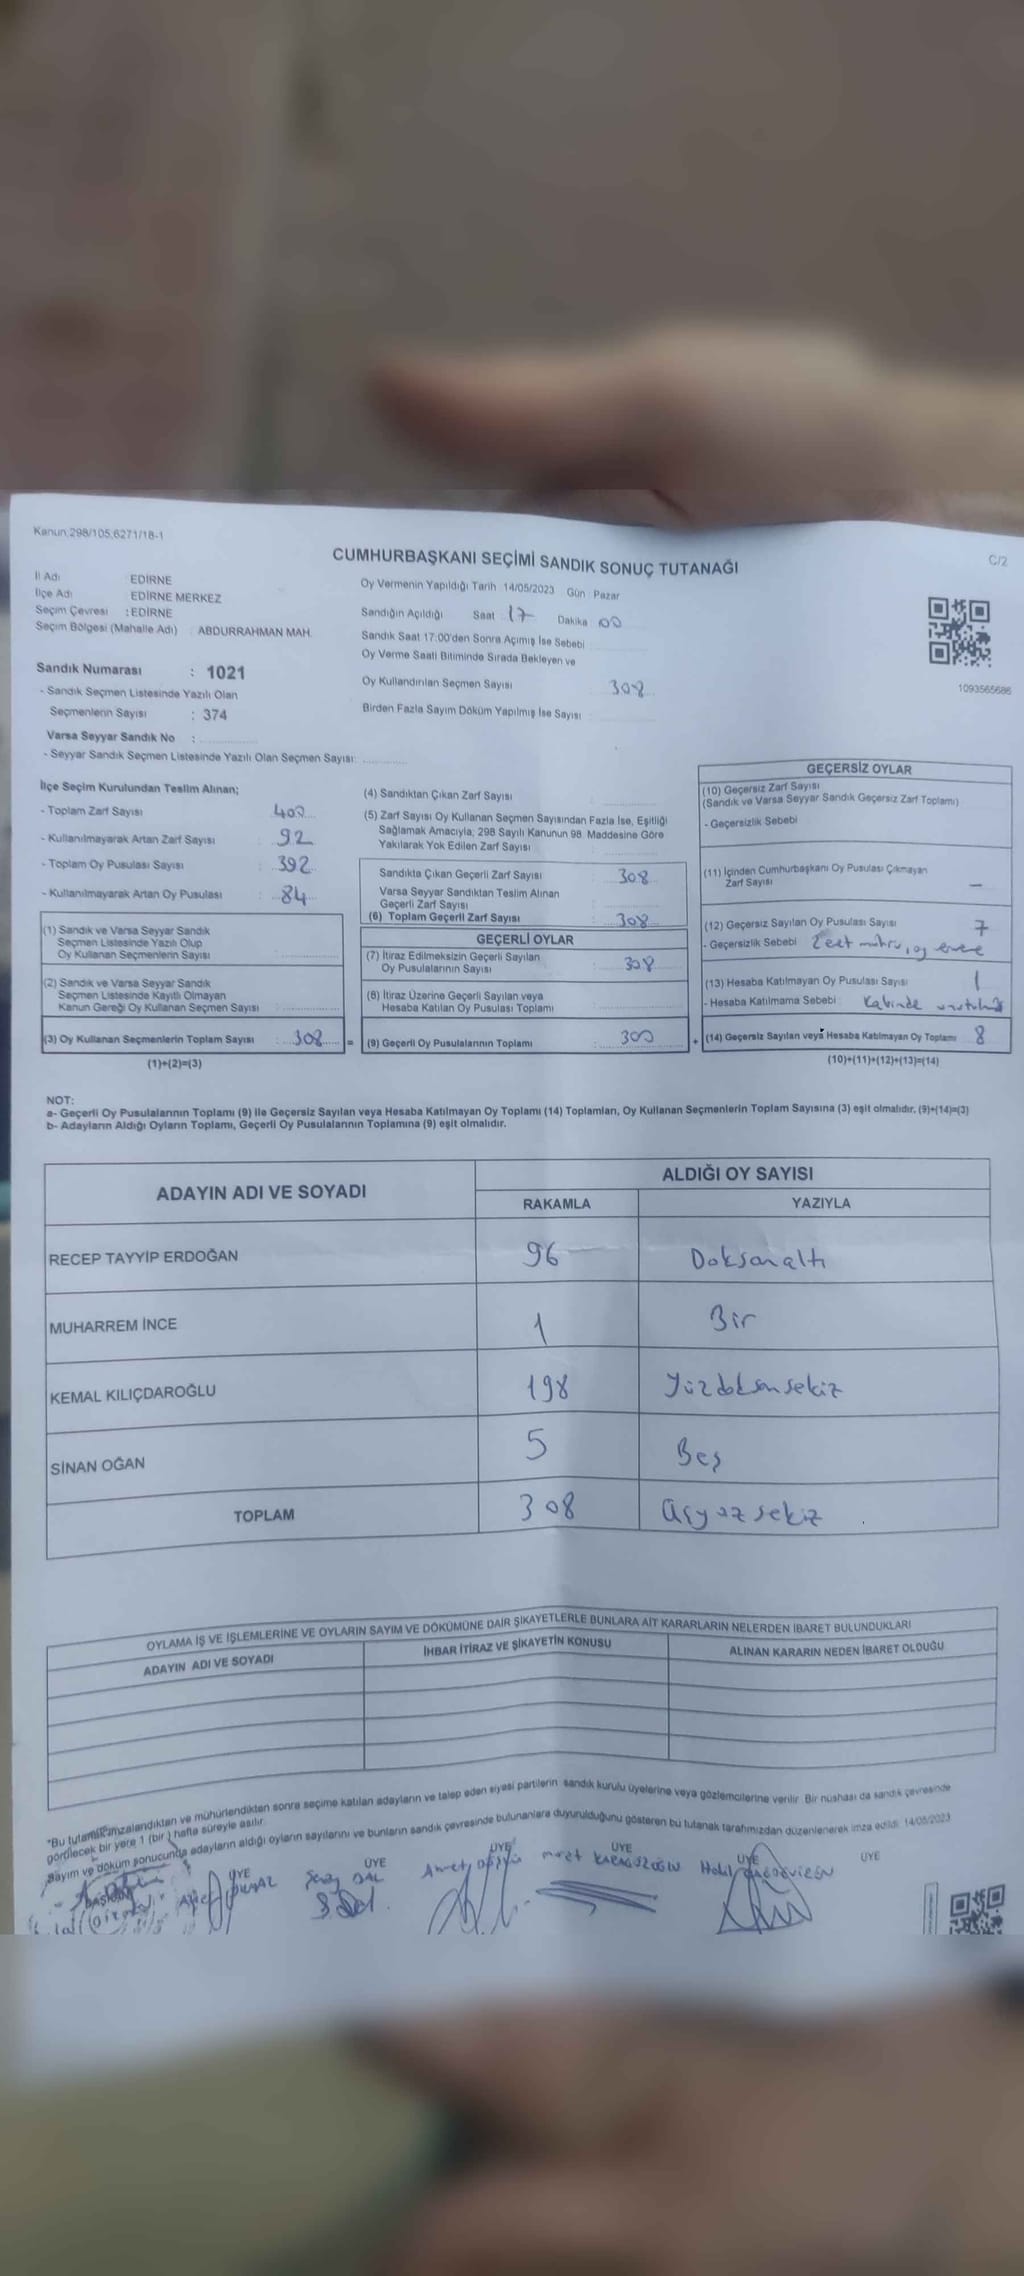 Kanun:298/105,6271/18-1
C/2
CUMHURBAŞKANI SEÇİMİ SANDIK SONUÇ TUTANAĞI
İl Adı EDİRNE
İlçe Adı EDİRNE MERKEZ
Seçim Çevresi : EDİRNE
Seçim Bölgesi (Mahalle Adı) ABDURRAHMAN MAH.
Oy Vermenin Yapıldığı Tarih 14/05/2023 Gün Pazar
Sandığın Açıldığı Saat 17 Dakika 00
Sandık Saat 17:00'den Sonra Açımış İse Sebebi
Oy Verme Saati Bitiminde Sırada Bekleyen ve
Oy Kullandırılan Seçmen Sayısı 308
Birden Fazla Sayım Döküm Yapılmış İse Sayısı
1093565686
Sandık Numarası : 1021
- Sandık Seçmen Listesinde Yazılı Olan
Seçmenlerin Sayısı : 374
Varsa Seyyar Sandık No :
- Seyyar Sandık Seçmen Listesinde Yazılı Olan Seçmen Sayısı:
İlçe Seçim Kurulundan Teslim Alınan;
- Toplam Zarf Sayısı : 400
- Kullanılmayarak Artan Zarf Sayısı : 92
- Toplam Oy Pusulası Sayısı : 392
- Kullanılmayarak Artan Oy Pusulası : 84
(1) Sandık ve Varsa Seyyar Sandık
Seçmen Listesinde Yazılı Olup
Oy Kullanan Seçmenlerin Sayısı
(2) Sandık ve Varsa Seyyar Sandık
Seçmen Listesinde Kayıtlı Olmayan
Kanun Gereği Oy Kullanan Seçmen Sayısı
(3) Oy Kullanan Seçmenlerin Toplam Sayısı : 308 =
(1)+(2)=(3)
(4) Sandıktan Çıkan Zarf Sayısı
(5) Zarf Sayısı Oy Kullanan Seçmen Sayısından Fazla İse, Eşitliği
Sağlamak Amacıyla; 298 Sayılı Kanunun 98. Maddesine Göre
Yakılarak Yok Edilen Zarf Sayısı
Sandıkta Çıkan Geçerli Zarf Sayısı : 308
Varsa Seyyar Sandıktan Teslim Alınan
Geçerli Zarf Sayısı
(6) Toplam Geçerli Zarf Sayısı : 308
GEÇERLİ OYLAR
(7) İtiraz Edilmeksizin Geçerli Sayılan
Oy Pusulalarının Sayısı : 308
(8) İtiraz Üzerine Geçerli Sayılan veya
Hesaba Katılan Oy Pusulası Toplamı
(9) Geçerli Oy Pusulalarının Toplamı : 300 +
GEÇERSİZ OYLAR
(10) Geçersiz Zarf Sayısı
(Sandık ve Varsa Seyyar Sandık Geçersiz Zarf Toplamı)
- Geçersizlik Sebebi
(11) İçinden Cumhurbaşkanı Oy Pusulası Çıkmayan
Zarf Sayısı —
(12) Geçersiz Sayılan Oy Pusulası Sayısı 7
- Geçersizlik Sebebi
(13) Hesaba Katılmayan Oy Pusulası Sayısı 1
- Hesaba Katılmama Sebebi Kabinde
(14) Geçersiz Sayılan veya Hesaba Katılmayan Oy Toplamı 8
(10)+(11)+(12)+(13)=(14)
NOT:
a- Geçerli Oy Pusulalarının Toplamı (9) ile Geçersiz Sayılan veya Hesaba Katılmayan Oy Toplamı (14) Toplamları, Oy Kullanan Seçmenlerin Toplam Sayısına (3) eşit olmalıdır. (9)+(14)=(3)
b- Adayların Aldığı Oyların Toplamı, Geçerli Oy Pusulalarının Toplamına (9) eşit olmalıdır.
ADAYIN ADI VE SOYADI
ALDIĞI OY SAYISI
RAKAMLA YAZIYLA
RECEP TAYYİP ERDOĞAN 96 Doksanaltı
MUHARREM İNCE 1 Bir
KEMAL KILIÇDAROĞLU 198 Yüzdoksansekiz
SİNAN OĞAN 5 Beş
TOPLAM 308 Üçyüzsekiz
OYLAMA İŞ VE İŞLEMLERİNE VE OYLARIN SAYIM VE DÖKÜMÜNE DAİR ŞİKAYETLERLE BUNLARA AİT KARARLARIN NELERDEN İBARET BULUNDUKLARI
ADAYIN ADI VE SOYADI İHBAR İTİRAZ VE ŞİKAYETİN KONUSU ALINAN KARARIN NEDEN İBARET OLDUĞU
*Bu tutanak imzalandıktan ve mühürlendikten sonra seçime katılan adayların ve talep eden siyasi partilerin sandık kurulu üyelerine veya gözlemcilerine verilir. Bir nüshası da sandık çevresinde
görülecek bir yere 1 (bir) hafta süreyle asılır.
Sayım ve döküm sonucunda adayların aldığı oyların sayılarını ve bunların sandık çevresinde bulunanlara duyurulduğunu gösteren bu tutanak tarafımızdan düzenlenerek imza edildi. 14/05/2023
BAŞKAN ÜYE ÜYE ÜYE ÜYE ÜYE ÜYE